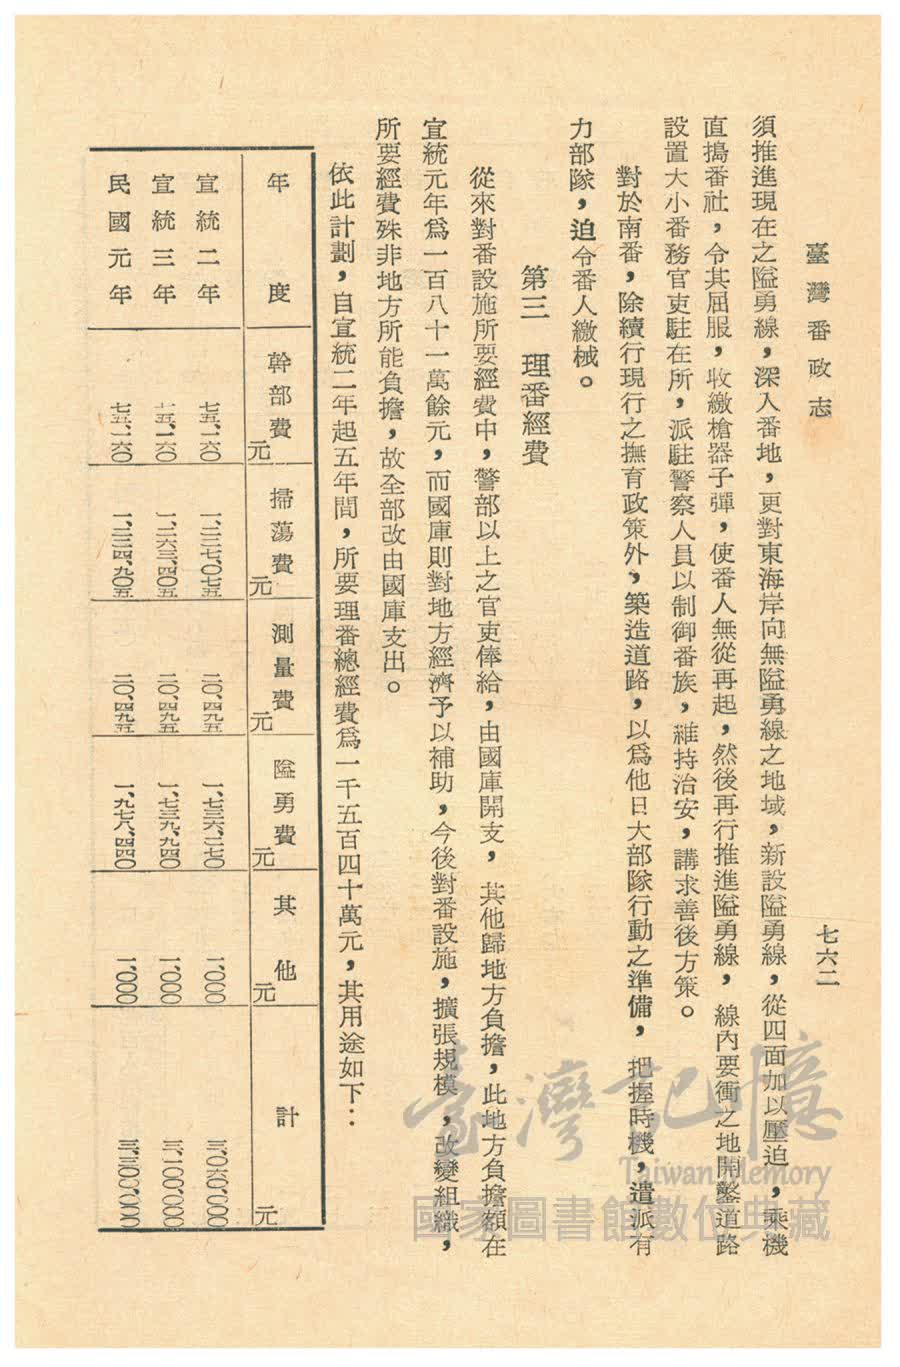 臺灣番政志
七六二
須推進現在之隘勇線，深入番地，更對東海岸向無隘勇線之地域，新設隘勇線，從四面加以壓迫，乘機
直搗番社，令其屈服，收繳槍器子彈，使番人無從再起，然後再行推進隘勇線，線內要衝之地開鑿道路
設置大小番務官吏駐在所，派駐警察人員以制御番族，維持治安，講求善後方策。
對於南番，除續行現行之撫育政策外，築造道路，以爲他日大部隊行動之準備，把握時機，遣派有
力部隊，迫令番人繳械。
第三　理番經費
從來對番設施所要經費中，警部以上之官吏俸給，由國庫開支，其他歸地方負擔，此地方負擔額在
宣統元年爲一百八十一萬餘元，而國庫則對地方經濟予以補助，今後對番設施，擴張規模，改變組織，
所要經費殊非地方所能負擔，故全部改由國庫支出。
依此計劃，自宣統二年起五年間，所要理番總經費爲一千五百四十萬元，其用途如下：
年度　幹部費元　掃蕩費元　測量費元　隘勇費元　其他元　計元
宣統二年　七五、一六〇　一、二二七、〇七五　二〇、四九五　一、七三六、二七〇　一、〇〇〇　三、〇六〇、〇〇〇
宣統三年　七五、一六〇　一、二六三、四〇五　二〇、四九五　一、七三九、九四〇　一、〇〇〇　三、一〇〇、〇〇〇
民國元年　七五、一六〇　一、二二四、九〇五　二〇、四九五　一、九七八、四四〇　一、〇〇〇　三、三〇〇、〇〇〇
臺灣記憶
Taiwan Memory
國家圖書館數位典藏